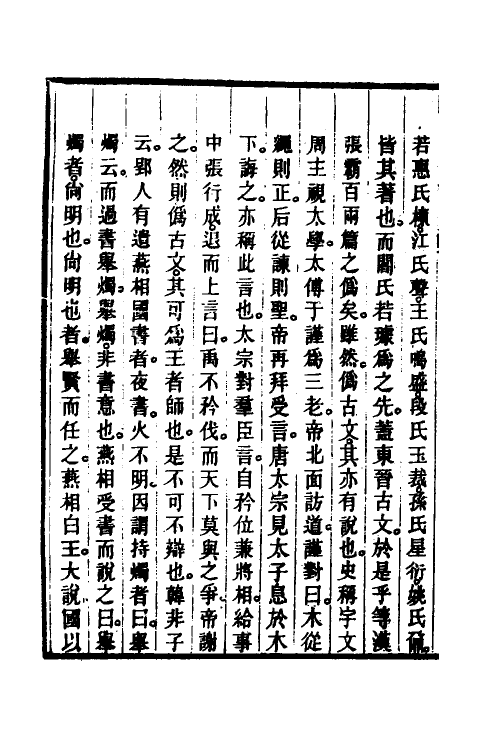 若惠氏棟江氏聲王氏鳴盛段氏玉裁孫氏星衍姚氏鼐。
皆其著也。而閻氏若璩爲之先。蓋東晉古文。於是乎等漢
張霸百兩篇之僞矣。雖然。僞古文。其亦有說也。史稱宇文
周主視太學。太傅于謹爲三老。帝北面訪道。謹對曰。木從
繩則正。后從諫則聖。帝再拜受言。唐太宗見太子息於木
下。誨之。亦稱此言也。太宗對羣臣。言自矜位兼將相。給事
中張行成。退而上言曰。禹不矜伐。而天下莫與之爭。帝謝
之。然則僞古文。其可爲王者師也。是不可不辯也。韓非子
云。郢人有遺燕相國書者。夜書。火不明。因謂持燭者曰。舉
燭云。而過書舉燭。舉燭。非書意也。燕相受書而說之曰。舉
燭者。尚明也。尚明也者。舉賢而任之。燕相白王。大說。國以